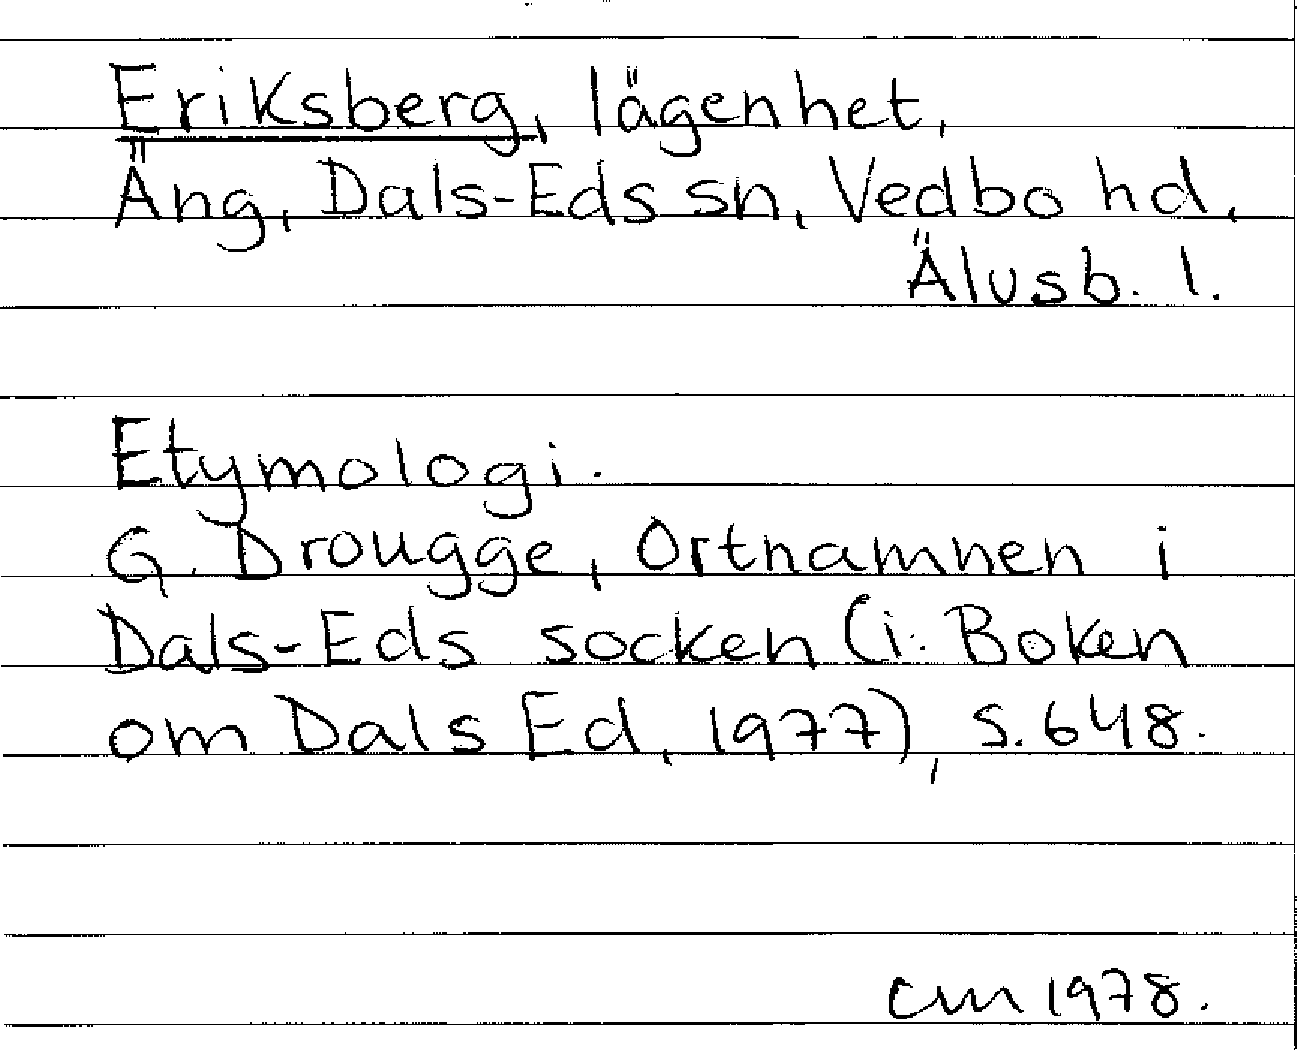 Eriksberg, lägenhet,
Äng, Dals-Eds sn, Vedbo hd,
Älvsb. l.
Etymologi.
G. Drougge, Ortnamnen i
Dals-Eds socken (i: Boken
om Dals Ed, 1977), s. 648.
CM 1978.